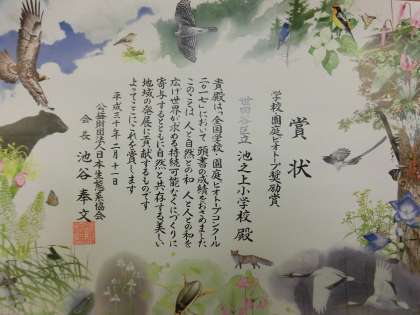 賞状
学校・園庭ビオトープ奨励賞
世田谷区立 池之上小学校 殿
貴殿は、「全国学校・園庭ビオトープコンクール
二〇一七」において 頭書の成績をおさめました
このことは 人と自然との和 人と人との和を
広げ世界が求める持続可能なくにづくりに
寄与するとともに自然と共存する美しい
地域の発展に貢献するものです
よってここにこれを賞します
平成三十年二月十一日
公益財団法人日本生態系協会
会長 池谷奉文